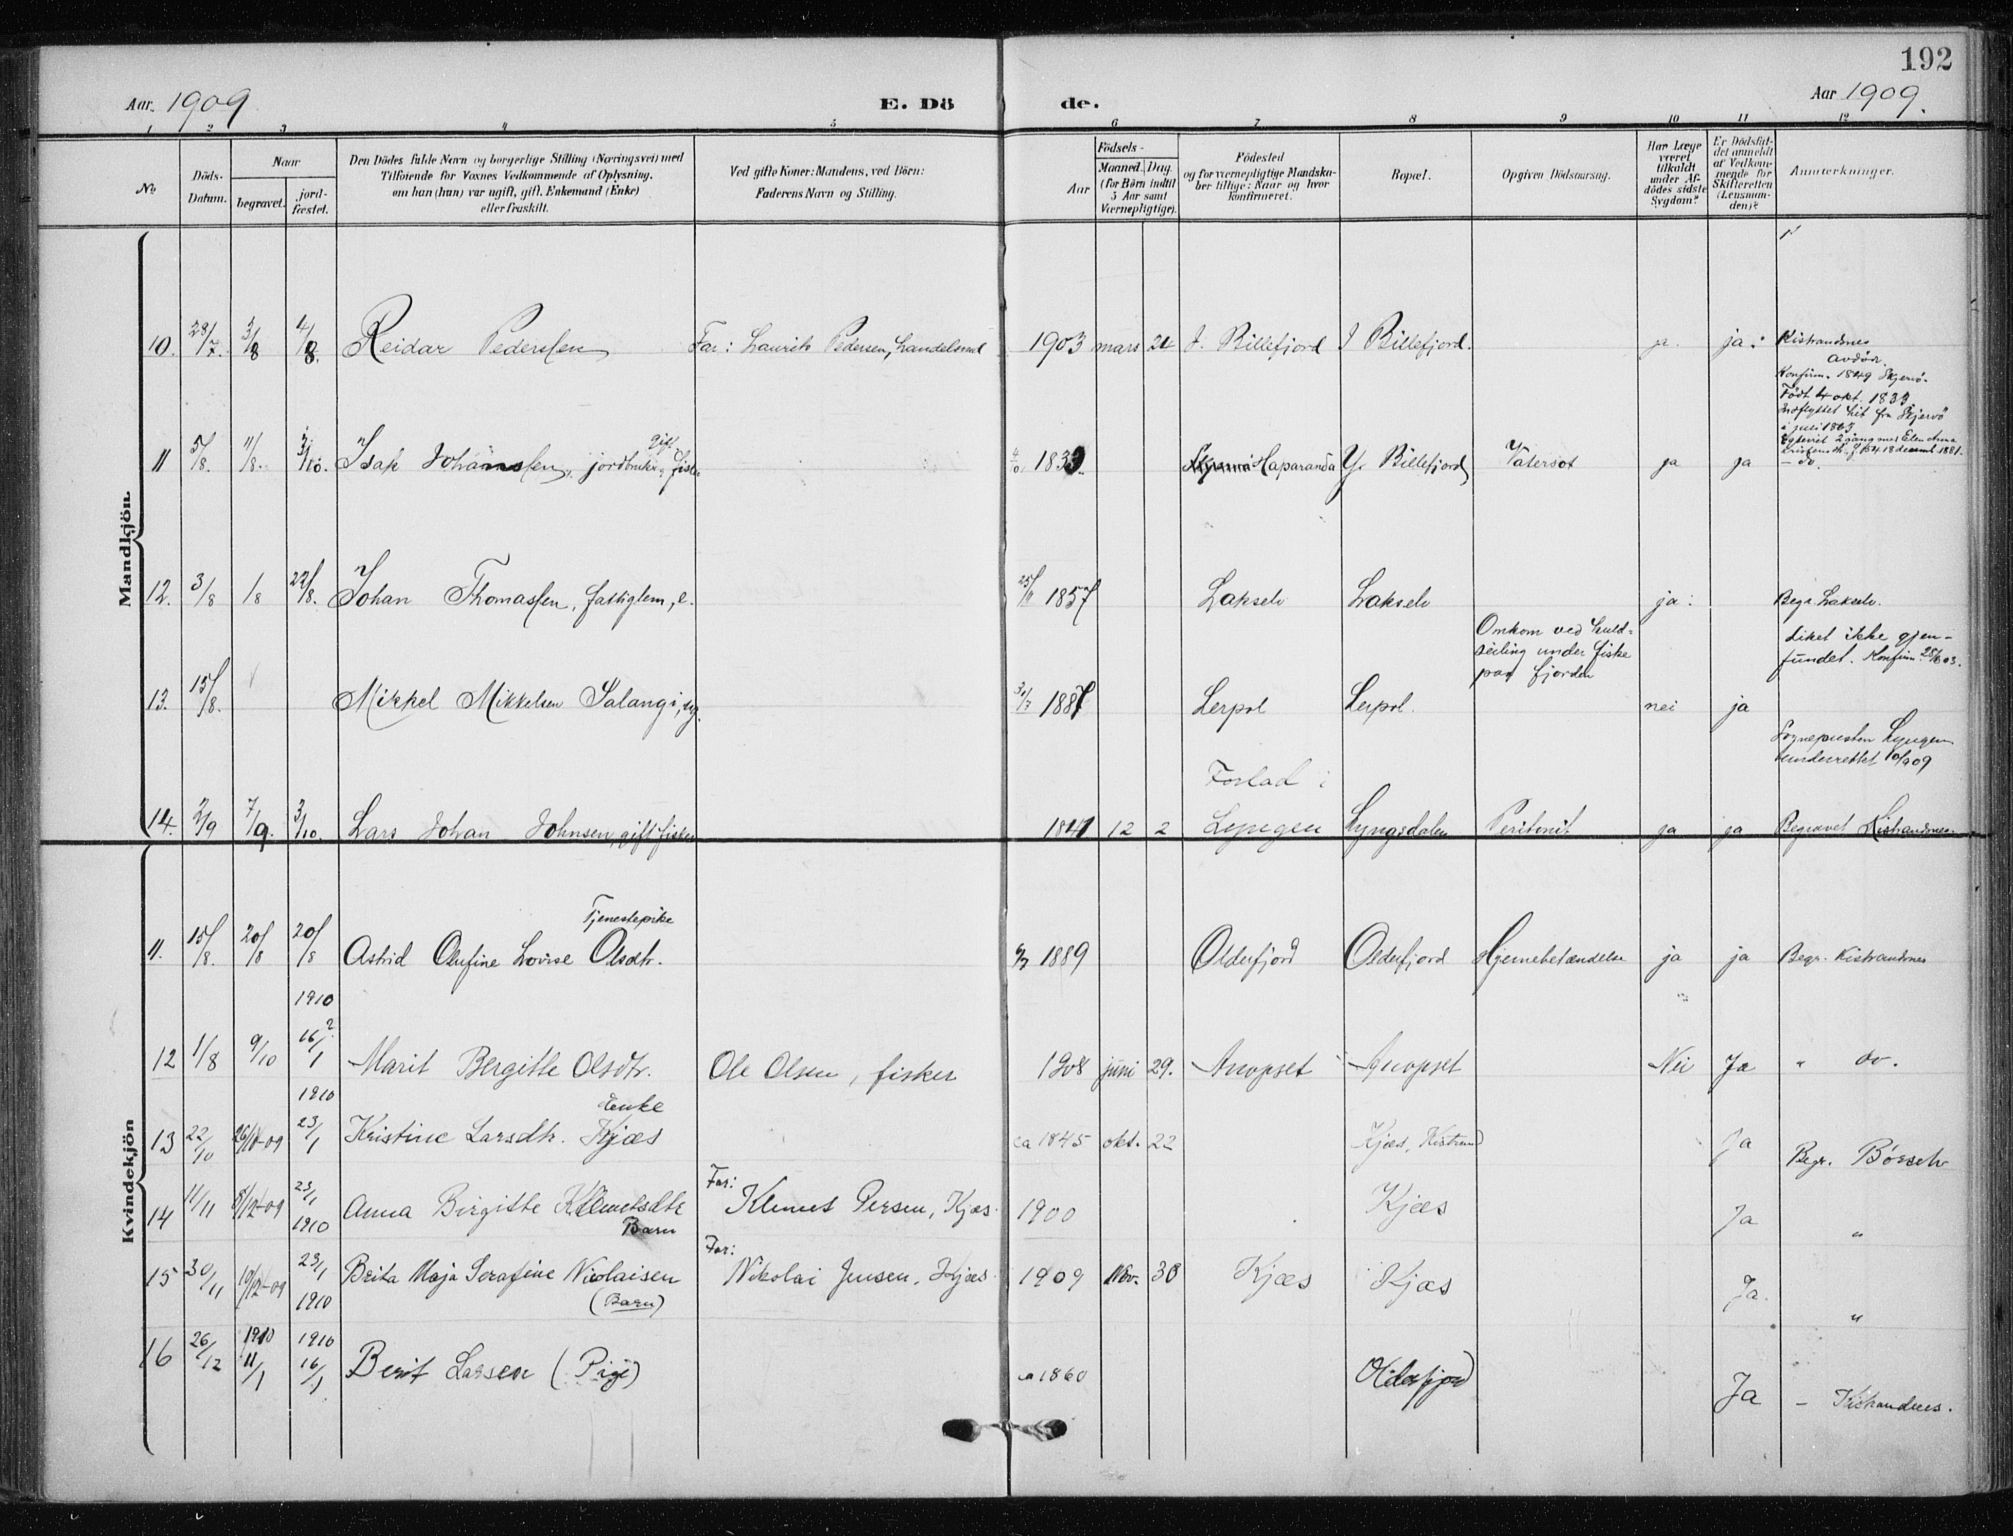 192
Aar. 1909. E. Döde. Aar 1909.
1 2 3 4 5 6 7 8 9 10 11 12
No
Döds-Datum.
Naar
begravet.
jord-fæstet.
Den Dödes fulde Navn og borgerlige Stilling (Næringsvei) med
Tilföiende for Voxnes Vedkommende af Oplysning,
om han (hun) var ugift, gift, Enkemand (Enke)
eller fraskilt.
Ved gifte Koner: Mandens, ved Börn:
Faderens Navn og Stilling.
Födsels-
Aar
Maaned. Dag.
(for Börn indtil
5 Aar samt
Værnepligtige).
Födested
og for værnepligtige Mandska-
ber tillige: Naar og hvor
konfirmeret.
Bopæl.
Opgiven Dödsaarsag.
Har Læge
været
tilkaldt
under Af-
dödes sidste
Sygdom?
Er Dödsfal-
det anmeldt
af Vedkom-
mende for
Skifteretten
(Lensman-
den)?
Anmerkninger.
Mandkjön.
10. 28/7. 3/8 4/8. Reidar Pederssen Far: Laurits Pedersen, handelsmd 1903 mars 21 I. Billefjord I Billefjord. ja. ja. Kistrandnes
Konfirm. 1849 Skjervö.
Födt 4 okt. 1833
Indflyttet hit fra Skjervö
i juli 1863
11 5/8. 11/8. 3/10. Isak Johanssen, jordbruker, gift fisker 4/10 1833. Haparanda Y. Billefjord Vatersot ja ja
– do.
12. 3/8 /8 22/8. Johan Thomassen, fattiglem, e. 25/11 1857 Lakselv Lakselv ja. Begr. Lakselv.
Omkom ved kuld-
seiling under fiske
paa fjorden
Liket ikke gjen-
fundet. Konfirm. 28/6 03.
13. 15/8. Mikkel Mikkelsen Salangi, ug. 30/7 1887 Lerpol Lerpol. nei ja
Sognepresten Lyngen
underrettet 10/9 09
Forlad i
14. 2/9 7/9. 3/10. Lars Johan Johnsen, gift fisker 1841 12 2 Lyngen Lyngsdalen Peritonit ja ja Begravet Kistrandnes.
Kvindekjön
Tjenestepike
11. 15/8. 20/8 20/8 Astrid Olufine Lovise Olsdtr. 1889 Olderfjord Olderfjord Hjernebetændelse ja ja Begr. Kistrandnes
1910
12 1/8 9/10 16/1 ? Marit Bergitte Olsdtr. Ole Olsen, fisker 1908 juni 29. Anopset Anopset Nei Ja " do.
1910
Enke
13 22/10 26/10-09 23/1 Kristine Larsdtr. Kjæs ca 1845 okt. 22 Kjæs, Kistrand Ja Begr. Börselv
14 11/11 8/12-09 23/1 1910 Anna Birgitte Klemetsdtr Barn Far: Klemet Persen, Kjæs. 1900 Kjæs Ja "
15 30/11 19/12-09 23/1 1910 Brita Maja Serafine Nicolaisen (Barn) Far: Nikolai Jensen, Kjæs 1909 Nov. 30 Kjæs Kjæs Ja. "
16 26/12 1910 11/1 1910 16/1 Berit Larsen (Pige) ca 1860 Olderfjord Ja – Kistrandnes.